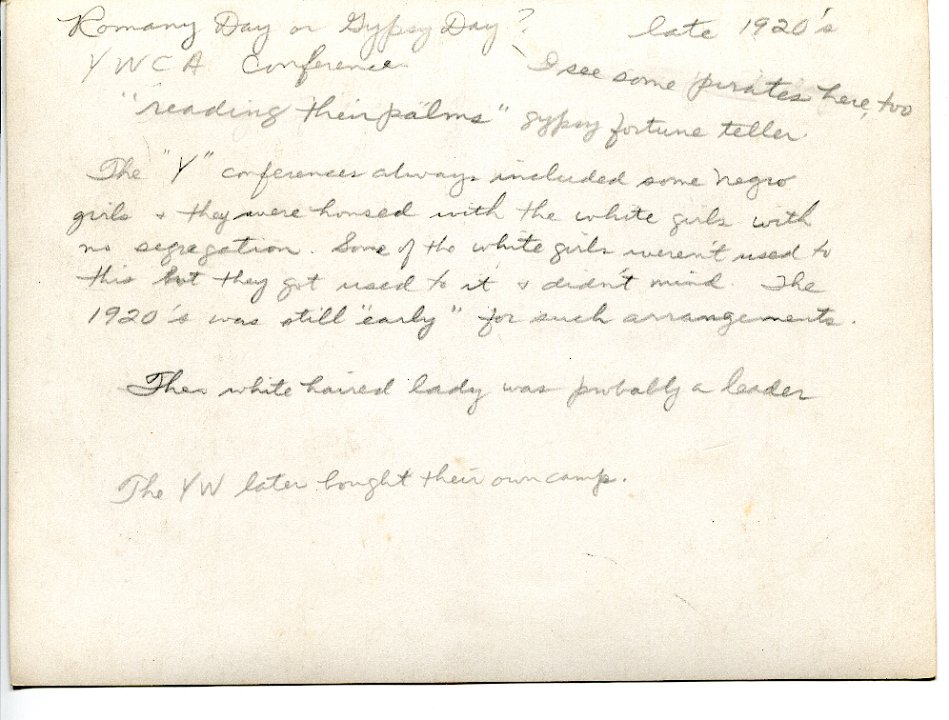 Romany Day or Gypsy Day? late 1920's
YWCA Conference I see some pirates here, too
"reading their palms" gypsy fortune teller
The "Y" conferences always included some negro
girls & they were housed with the white girls with
no segregation. Some of the white girls weren't used to
this but they got used to it & didn't mind. The
1920's was still "early" for such arrangements.
The white haired lady was probably a leader
The YW later bought their own camp.